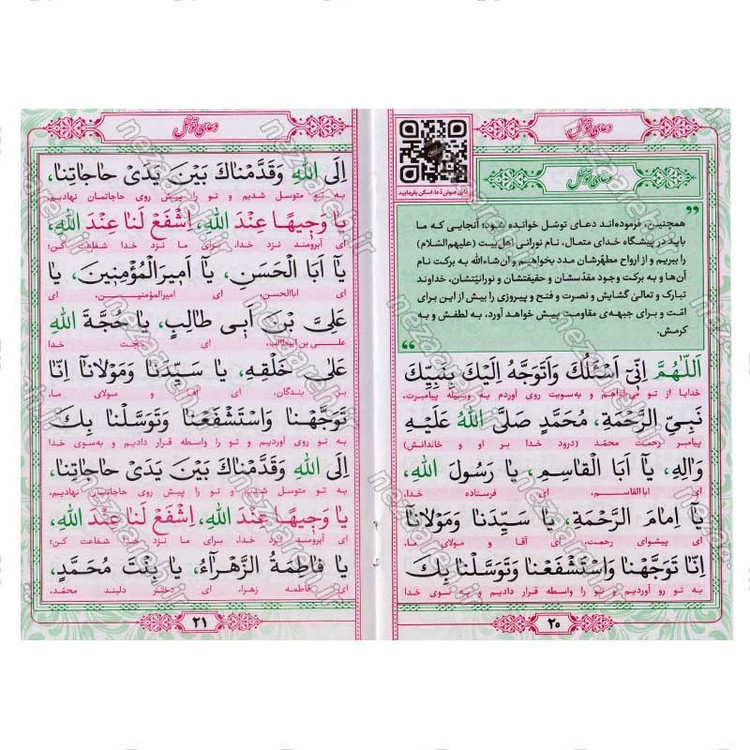 دعای توسّل
دعای توسّل
همچنین، فرموده‌اند دعای توسّل خوانده شود؛ آنجایی که ما
باید در پیشگاه خدای متعال، نام نورانی اهل‌بیت (علیهم‌السّلام)
را ببریم و از ارواح مطهّرشان مدد بخواهیم و ان‌شاءالله به برکت نام
آن‌ها و به برکت وجود مقدّسشان و حقیقتشان و نورانیّتشان، خداوند
تبارک و تعالیٰ گشایش و نصرت و فتح و پیروزی را بیش از این برای
امّت و برای جبهه‌ی مقاومت پیش خواهد آورد، به لطفش و به
کرمش.
اَللّٰهُمَّ اِنّی اَسْئَلُكَ وَاَتَوَجَّهُ اِلَیْكَ بِنَبِیِّكَ
خدایا از تو می‌خواهم و به‌سویت روی آوردم به وسیله پیامبرت،
نَبِیِّ الرَّحْمَةِ، مُحَمَّدٍ صَلَّی اللهُ عَلَیْهِ
پیامبر رحمت محمّد (درود خدا بر او و خاندانش)
وَالِهِ، یٰآ اَبَا الْقاسِمِ، یا رَسُولَ اللهِ،
ای اباالقاسم، ای فرستاده خدا،
یٰآ اِمامَ الرَّحْمَةِ، یا سَیِّدَنا وَمَوْلانآ
ای پیشوای رحمت، ای آقا و مولای ما،
اِنّا تَوَجَّهْنا وَاسْتَشْفَعْنا وَتَوَسَّلْنا بِكَ
به تو رو آوردیم و تو را واسطه قرار دادیم و به سوی خدا
۲۰
دعای توسّل
اِلَی اللهِ وَقَدَّمْناكَ بَیْنَ یَدَیْ حاجاتِنا،
به تو متوسل شدیم و تو را پیش روی حاجاتمان نهادیم،
یا وَجیهًا عِنْدَ اللهِ، اِشْفَعْ لَنا عِنْدَ اللهِ،
ای آبرومند نزد خدا، برای ما نزد خدا شفاعت کن؛
یٰآ اَبَا الْحَسَنِ، یٰآ اَمیرَ الْمُؤْمِنینَ، یا
ای اباالحسن، ای امیرالمؤمنین، ای
عَلِیَّ بْنَ اَبی طالِبٍ، یا حُجَّةَ اللهِ
علی بن ابیطالب، ای حجت خدا
عَلیٰ خَلْقِهِ، یا سَیِّدَنا وَمَوْلانآ اِنّا
بر بندگان، ای آقا و مولای ما،
تَوَجَّهْنا وَاسْتَشْفَعْنا وَتَوَسَّلْنا بِكَ
به تو روی آوردیم و تو را واسطه قرار دادیم و به‌سوی خدا
اِلَی اللهِ وَقَدَّمْناكَ بَیْنَ یَدَیْ حاجاتِنا،
به تو متوسل شدیم و تو را پیش روی حاجاتمان نهادیم،
یا وَجیهًا عِنْدَ اللهِ، اِشْفَعْ لَنا عِنْدَ اللهِ،
ای آبرومند نزد خدا، برای ما نزد خدا شفاعت کن؛
یا فاطِمَةَ الزَّهْرآءُ، یا بِنْتَ مُحَمَّدٍ،
ای فاطمه زهرا، ای دختر دلبند محمّد،
۲۱
nezareh.ir